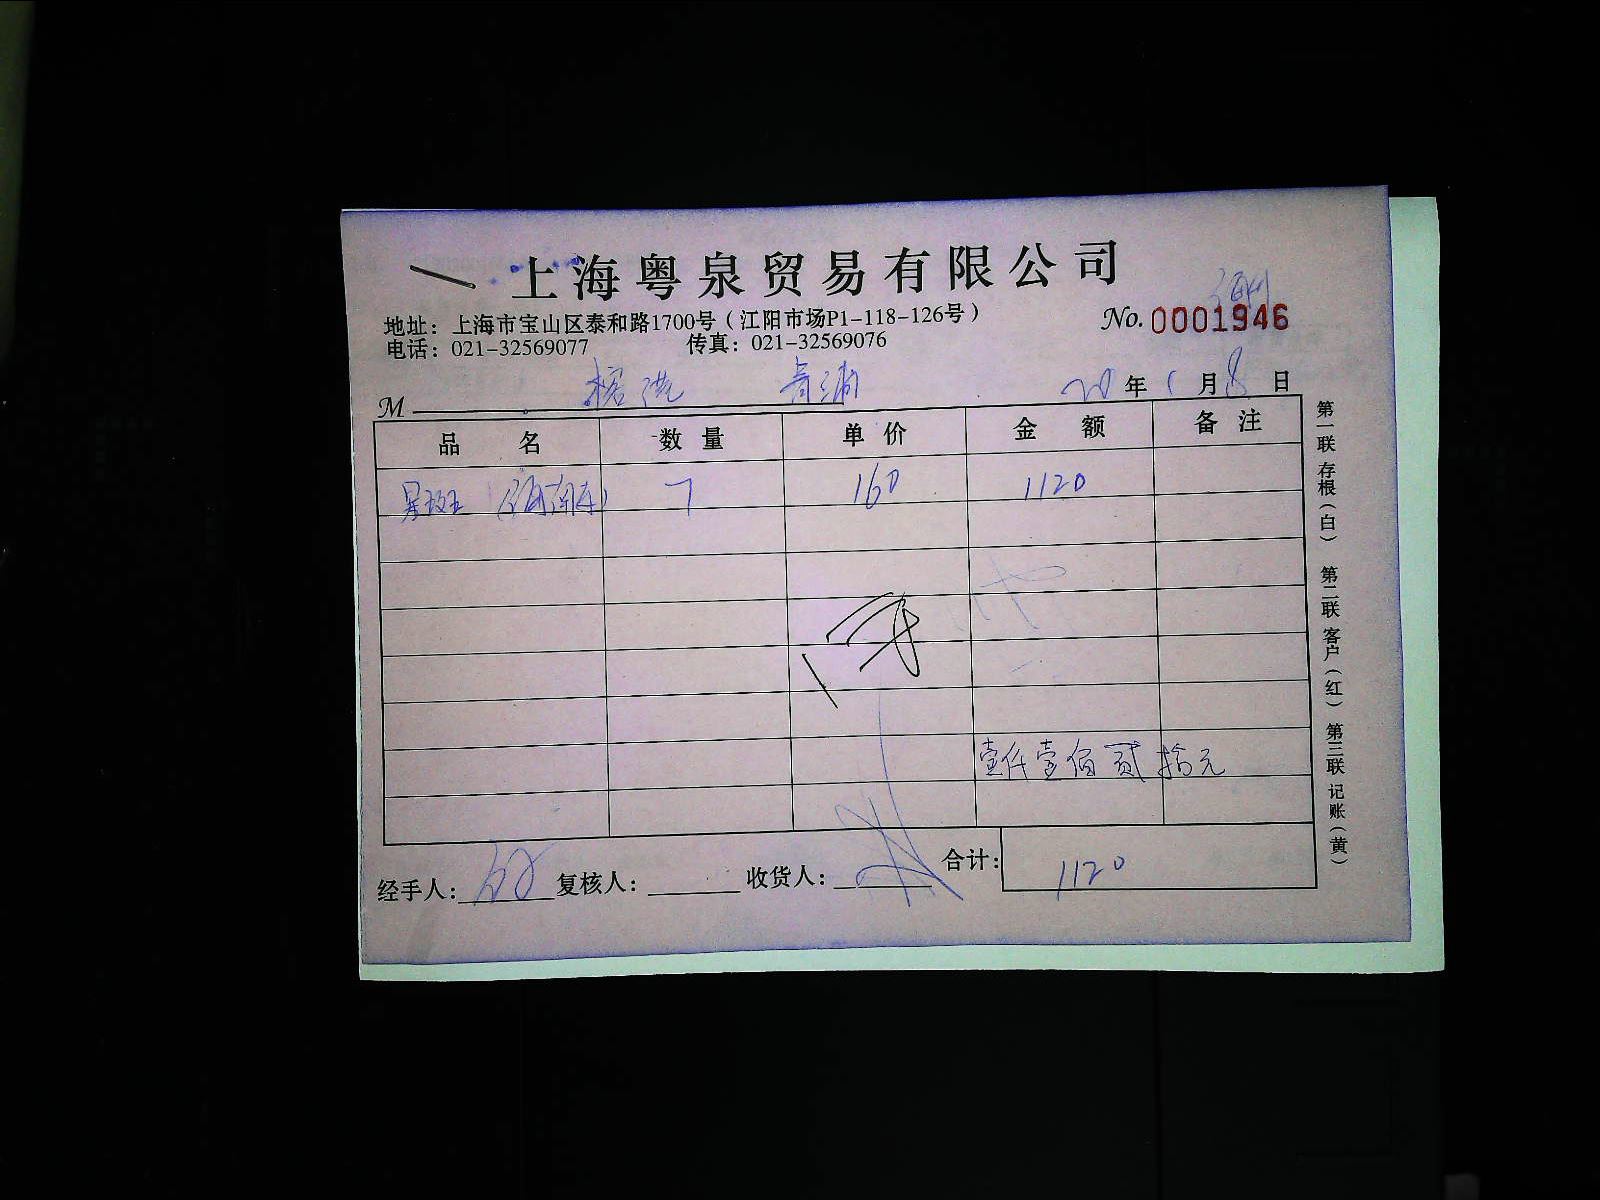 上海粤泉贸易有限公司
地址：上海市宝山区泰和路1700号（江阳市场P1-118-126号）
No. 0001946
电话：021-32569077 传真：021-32569076
M 榕港 青浦 20年1月8日
品名 数量 单价 金额 备注
星斑 7 160 1120
壹仟壹佰贰拾元
合计：1120
经手人： 复核人： 收货人：
第一联 存根（白） 第二联 客户（红） 第三联 记账（黄）